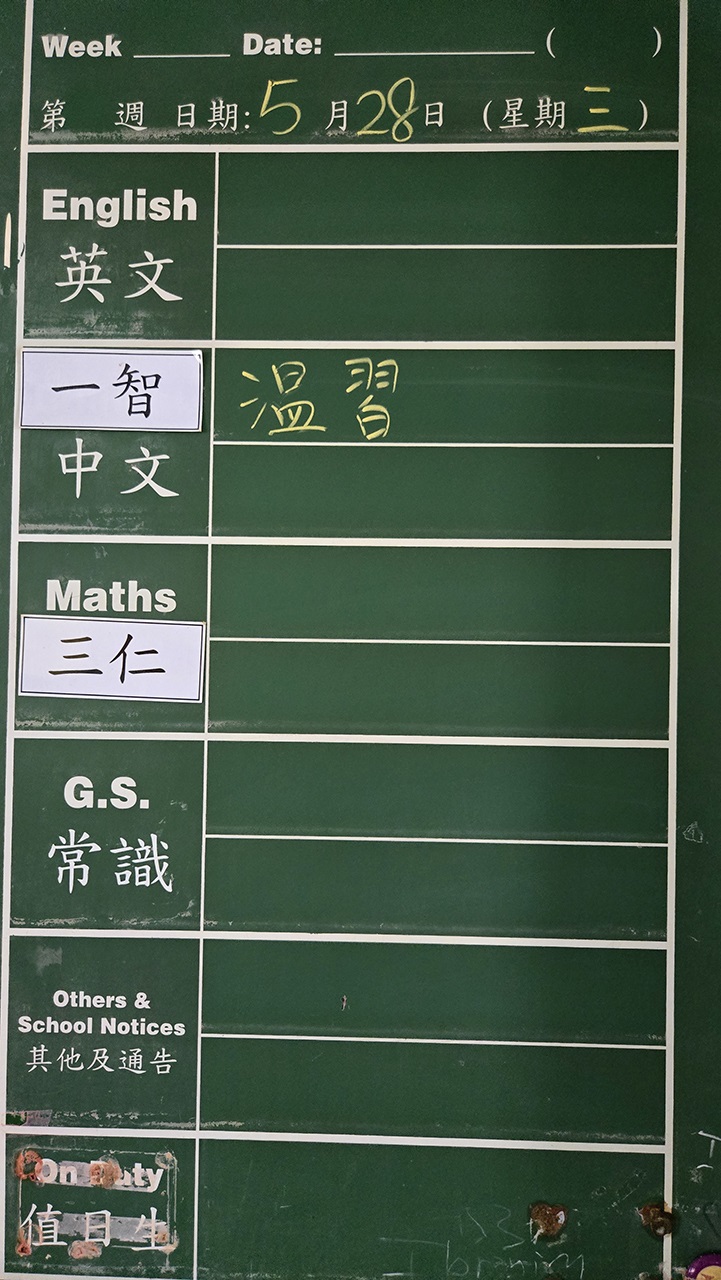 Week ______ Date: ______________ ( )
第 週 日期:5月28日 (星期三)
English
英文
一智 溫習
中文
Maths
三仁
G.S.
常識
Others &
School Notices
其他及通告
On Duty
值日生